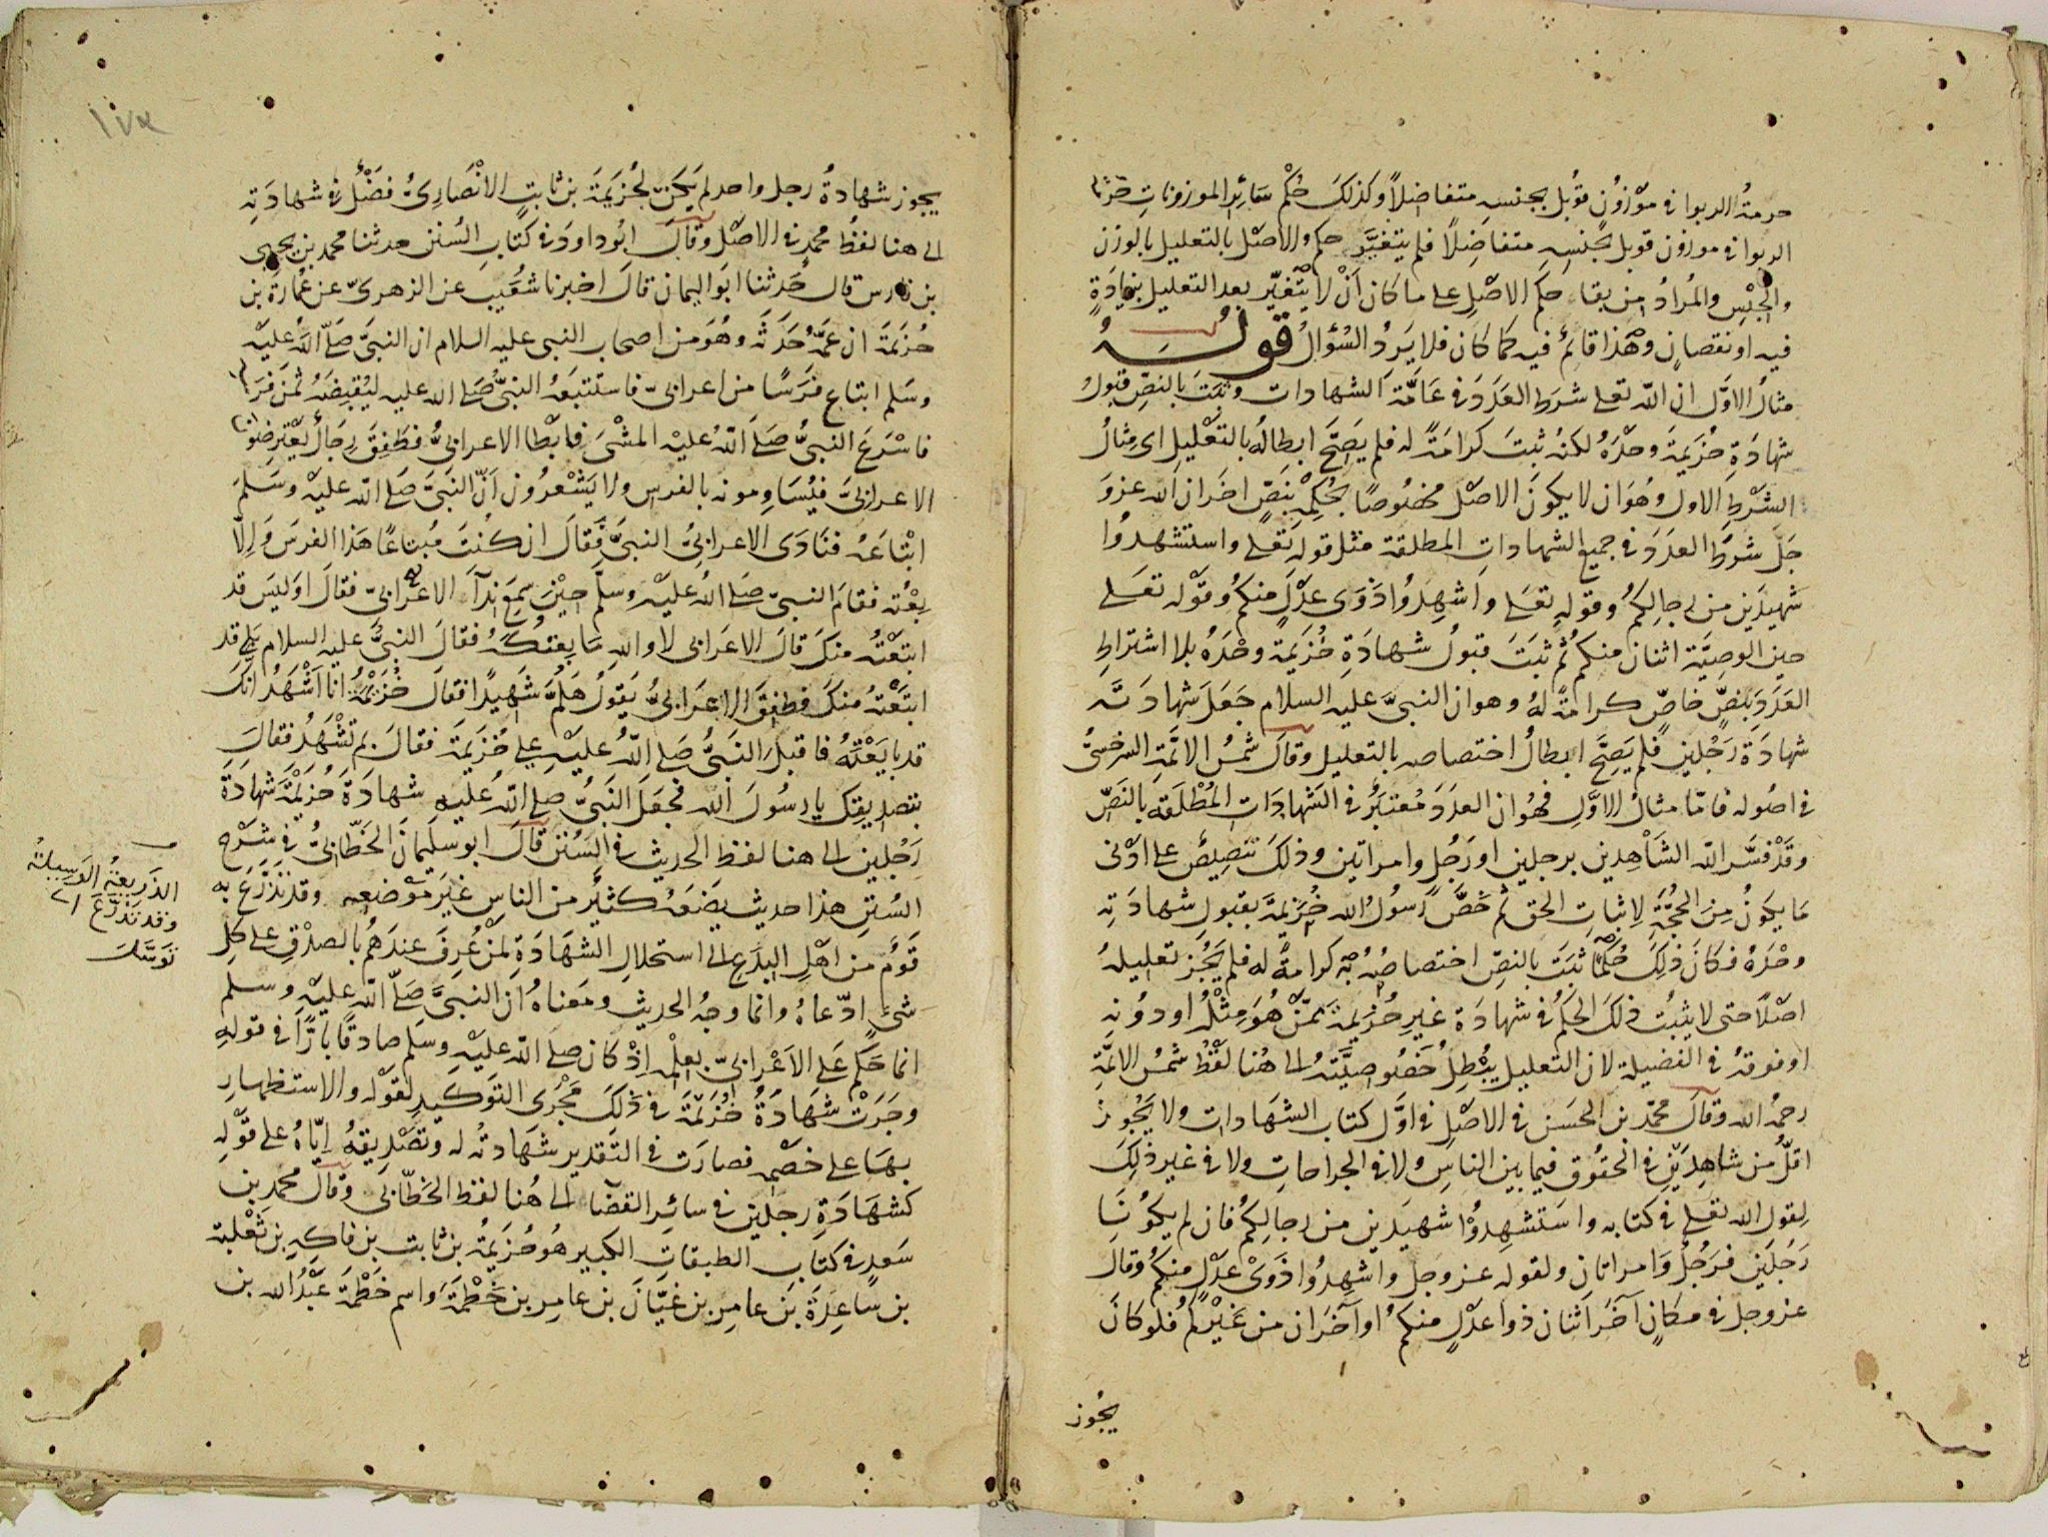 حرمةُ الربوا في موزُونٍ قُوبل بجنسه متفاضِلاً وكذلكَ حُكْم سَائِر الموزونات حرمة
الربوا في موزون قوبل بجنسِه متفاضِلاً فلم يتغيَّر حكم الاصْل بالتعليل بالوزن
والجِنْس والمُرادُ من بقاء حكم الاصْلِ على ما كان اَنْ لا يتَغيّر بعد التعليل بزيادَةٍ
فيه او نقصانٍ وهٰذا قائمٌ فيه كما كان فلا يَرِدُ السُؤالُ قولُه
مثالُ الاوَّل ان اللّه تعلى شرَط العَدَدَ في عَامَّة الشهادات وثَبَتَ بالنصّ قبُولُ
شهادَة خُزَيمةَ وحْدَهُ لكنهُ ثبتَ كرامَةً له فلم يَصِحَّ ابطالُه بالتعْليلِ اى مِثالُ
الشَرْطِ الاول وهُوَ ان لا يكونَ الاصْل مخصُوصًا بحُكمِه بنَصٍّ اخَر ان اللّه عزوَ
جَلّ شرَطَ العدَدَ في جميع الشهاداتِ المطلقة مثل قولِه تعلى واستشهدُوا
شهيدَين من رجالِكم وقولِه تعلى واَشهِدُوا ذَوَى عدْلٍ منكم وقَوْله تعلى
حين الوصِيَّة اثنان منكم ثُم ثَبَتَ قبُولُ شهادَةِ خُزَيمة وحْدَهُ بلا اشتراطِ
العَدَدِ بنصٍّ خاصٍّ كرامةً لهُ وهو ان النبيَّ عليه السلام جَعَلَ شهادَتَه
شهادَة رَجُلين فلم يَصِحَّ ابطالُ اختصاصه بالتعليل وقالَ شَمسُ الائمَّةِ السرخسىُّ
في اصُوله فامّا مثالُ الاوَّلِ فهُو ان العدَدَ مُعتبَرٌ في الشهادَاتِ المُطْلَقَةِ بالنصّ
وقَدْ فسَّر اللّه الشاهِدين برجلين او رَجُلٍ وامراتين وذلكَ تنصِيصٌ على ادْنى
مَا يكونُ مِنَ الحُجَّةِ لاِثباتِ الحق ثم خَصَّ رَسُولُ اللّه خُزَيمةَ بقبولِ شهادَتِه
وحْدَهُ فكانَ ذلِكَ حُكمًا ثبَتَ بالنصّ اختصاصُهُ به كرامةً له فلم يَجُز تعليلهُ
اصْلاً حتى لا يثبُت ذلكَ الحكم في شهادَة غيرِ خُزَيمةَ ممّنْ هُوَ مِثْلُه او دونه
او فوقهُ في الفضيلة لان التعليل يُبْطِلُ خصُوصِيَّتَهُ الى هُنا لفْظُ شمسُ الائمَّةِ
رحمُه اللّه وقالَ محمّد بن الحَسَن في الاصْلِ في اوَّل كتاب الشهَادات ولا يَجُوز
اقلُّ من شاهِدَيْنِ في الحقُوقِ فيما بين الناسِ ولا في الجراحاتِ ولا في غير ذلِكَ
لِقول اللّه تعلى في كتابه واستشهِدُوْا شهيدين من رجالِكم فان لم يكُونَا
رَجُلَين فرَجُلٌ وَامراتان ولقوله عز وجل واشهِدُوا ذَوَىْ عدْلٍ منكم وقال
عزوجل في مكانٍ آخرَ اثنان ذوا عدْلٍ منكم او آخَرَان من غَيْركُم فلو كانَ
يجُوز
١٧٣
يجوز شهادةُ رجل واحد لم يكن لخُزيمَةَ بن ثابتٍ الانْصَارِىّ فضْلٌ في شهادَتِه
الى هنا لفظُ محمدٍ في الاصْل وقالَ ابُو داودَ في كتاب السُنن حدثنا محمد بن يحيى
بن فارس قال حَدثنا ابوَ اليمان قالَ اخبرنا شُعَيب عن الزهرىّ عن عُمَارَة بن
خُزَيمَةَ ان عمَّهُ حَدَّثَهُ وهُوَ من اصحاب النبى عليه السلام ان النبىَّ صَلّى اللّه عليْه
وسَلم ابتاع فَرَسًا من اعرابىّ فاستَتبعَهُ النبىُّ صَلى اللّه عليه ليُقبِضَهُ ثمَنَ فرَسِه
فاسْرَعَ النبىُّ صَلى اللّهُ عليْه المشْىَ فابْطا الاعرابىُّ فطفِقَ رجَالٌ يعْترِضونَ
الاعرابىَّ فيُسَاوِمونه بالفرس ولا يَشْعرُون اَنّ النبىَّ صَلى اللّه عليْه وسَلمَ
ابْتاعَهُ فنَادَى الاعرابىُّ النبىَّ فقالَ ان كنتَ مُبتاعًا هَذا الفرسَ وَاِلاّ
بِعْتُه فقامَ النبىّ صَلى اللّهُ عليْه وسلّم حِيْنَ سمِعَ نِدآءَ الاعْرَابىّ فقالَ اوَليسَ قد
ابتعْتُه منكَ قالَ الاعَرابى لا واللّهِ مَا بِعتُكَهُ فقالَ النبىُّ عليه السلام بَلى قد
ابتَعْتُه منكَ فطفِقَ الاعَرابىُّ يَقولُ هَلُمَّ شَهِيدًا فقالَ خُزَيْمَةُ انا اَشْهَدُ انّكَ
قد بايَعْتَهُ فاقبلَ النبىُّ صَلى اللّهُ عليْه على خُزَيمةَ فقالَ بم تشْهَدُ فقالَ
بتصديقِكَ يا رسُولَ اللّه فجعَلَ النبىُّ صلى اللّه عليه شهادَةَ خُزَيْمَةَ شهَادَةَ
رَجُلين الى هنا لفظ الحديث في السُنن قالَ ابو سليمانَ الخَطّابىُّ في شَرْح
السُنن هذا حديث يضَعُهُ كثيرٌ من الناسِ غيرَ مَوْضعِه وقد تذَرَّعَ به
قوْمٌ من اهْلِ البِدَع الى استحلالِ الشهَادَةِ لمَنْ عُرِفَ عندَهُم بالصدْقِ على كل
شئٍ ادّعاهُ وانما وجهُ الحديث ومَعناهُ ان النبىَّ صَلّى اللّه عليْه وسلم
انما حَكَمَ عَلى الاَعْرابىّ بعِلْمِه اِذْ كان صَلى اللّه عليْه وسَلم صادقًا بارًّا في قولِهِ
وجَرَتْ شهَادَةُ خُزَيْمَةَ في ذلكَ مَجْرَى التوكيدِ لقوْله والاستظهارِ
بهَا على خصْمِه فصارَت في التَقدير شهَادتُه له وتصْديقهُ اِيّاهُ على قوْلِه
كشهَادَةِ رجُلَين في سائرِ القضَايا الى هُنا لفظ الخطّابى وقالَ محمد بن
سَعدٍ في كتاب الطبقاتِ الكبير هُو خُزَيمَةُ بن ثابت بن فاكِهِ بن ثَعْلبة
بن سَاعِدَةَ بن عامِر بن غيَّانَ بن عامِر بن خَطْمَةَ واسم خَطْمَةَ عَبْدُ اللّه بن
الذَرِيعَةُ الوَسِيلةُ
وقد تَذَرَّعَ اى
توَسَّلَ